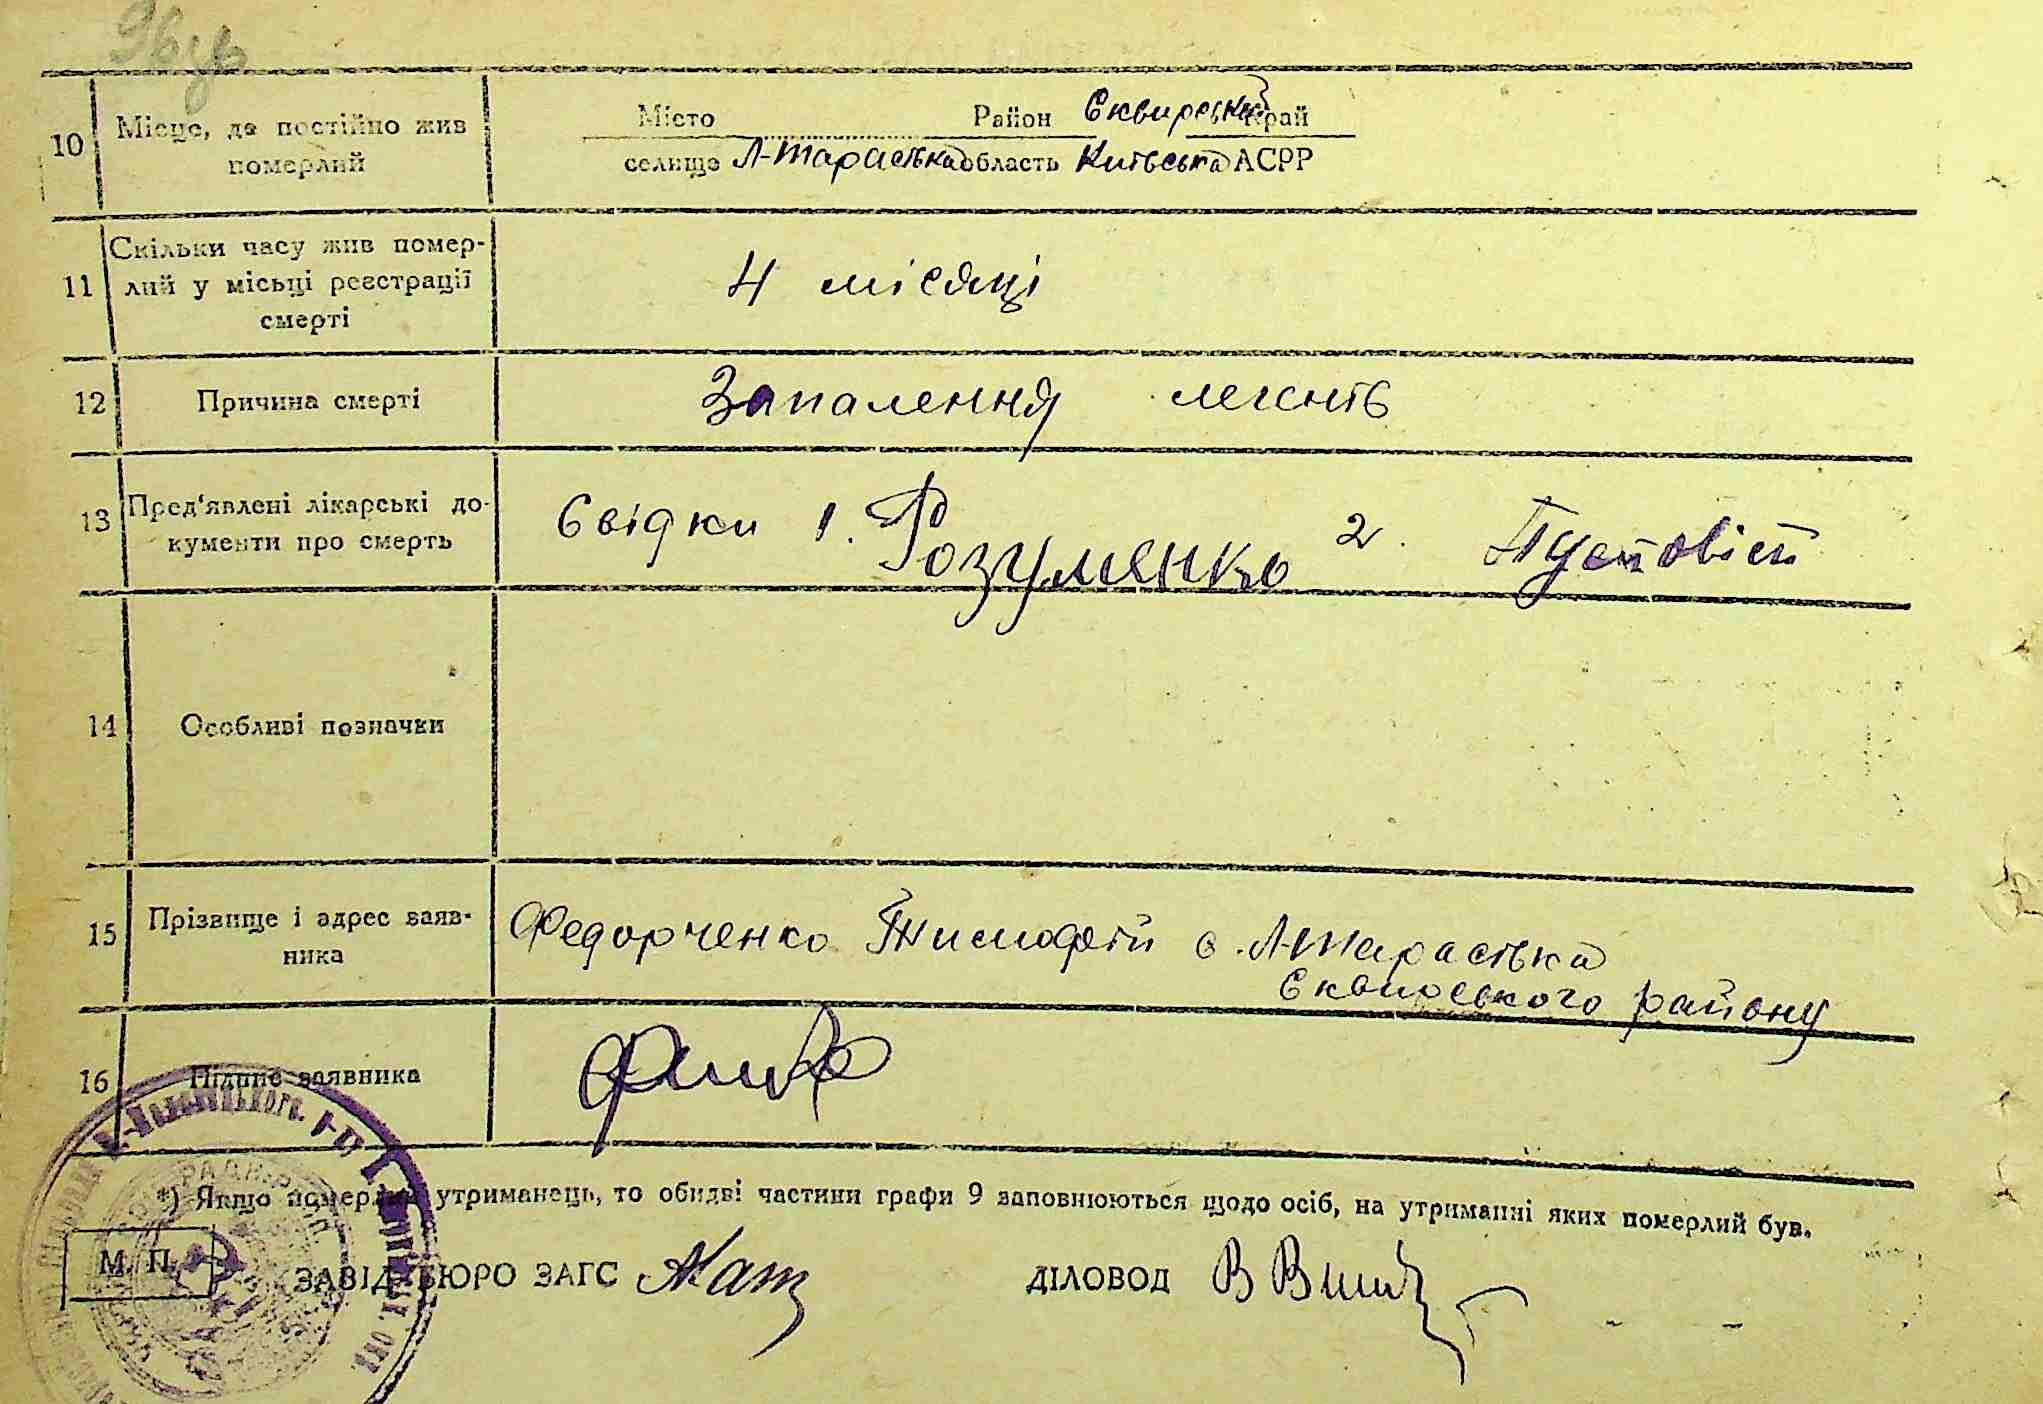 96 зв
10 Місце, де постійно жив померлий
Місто Район Сквирський Край
селище Л-Тарасівка область Київська АСРР
11 Скільки часу жив помер-
лий у місьці реєстрації
смерті
4 місяці
12 Причина смерті
Запалення легенів
13 Пред'явлені лікарські до-
кументи про смерть
Свідки 1. Розуменко 2. Пустовіт
14 Особливі позначки
15 Прізвище і адрес заяв-
ника
Федорченко Тимофей с. Л-Тарасівка
Сквирського району
16 Підпис заявника
*) Якщо померлий утриманець, то обидві частини графи 9 заповнюються щодо осіб, на утриманні яких померлий був.
М. П. ЗАВІД. БЮРО ЗАГС ДІЛОВОД